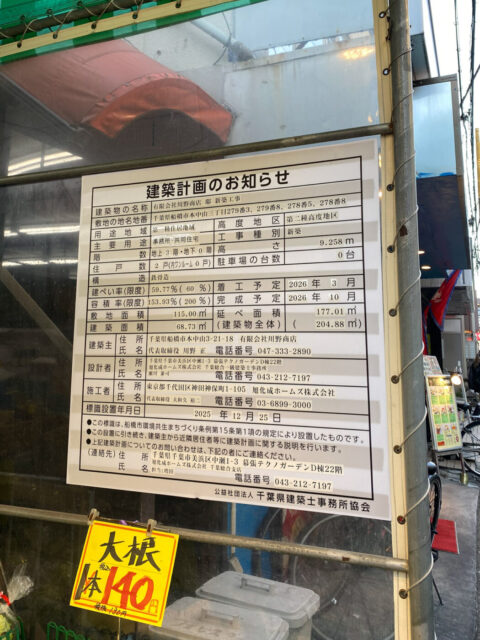 建築計画のお知らせ
建築物の名称 有限会社川野商店 邸 新築工事
敷地の地名地番 千葉県船橋市本中山三丁目279番3、279番8、278番5、278番8
用途地域 第一種住居地域 高度地区 第二種高度地区
主要用途 事務所・共同住宅 工事種別 新築
階数 地上3階・地下0階 高さ 9.258m
住戸数 2戸(内ワンルーム0戸) 駐車場の台数 0台
構造 鉄骨造
建ぺい率(限度) 59.77%(60%) 着工予定 2026年3月
容積率(限度) 153.93%(200%) 完成予定 2026年10月
敷地面積 115.00㎡ 延べ面積 177.01㎡
建築面積 68.73㎡ (建築物全体) (204.88㎡)
建築主 住所 千葉県船橋市本中山3-21-18 有限会社川野商店
氏名 代表取締役 川野 正 電話番号 047-333-2890
設計者 住所 千葉県千葉市美浜区中瀬1-3 幕張テクノガーデンD棟22階
旭化成ホームズ株式会社 千葉第一一級建築士事務所
氏名 電話番号 043-212-7197
施工者 住所 東京都千代田区神田神保町1-105 旭化成ホームズ株式会社
氏名 代表取締役 大和久 裕二 電話番号 03-6899-3000
標識設置年月日 2025年12月25日
●この標識は、船橋市環境共生まちづくり条例第15条第1項の規定により設置したものです。
●この設置に引き続き、建築主から近隣居住者等に建築計画に関する説明を行います。
●上記建築計画についてのお問い合わせは、下記の者にご連絡ください。
(連絡先) 住所 千葉県千葉市美浜区中瀬1-3 幕張テクノガーデンD棟22階
旭化成ホームズ株式会社 千葉総合支店
氏名 電話番号 043-212-7197
公益社団法人 千葉県建築士事務所協会
大根
1本 税込 140円